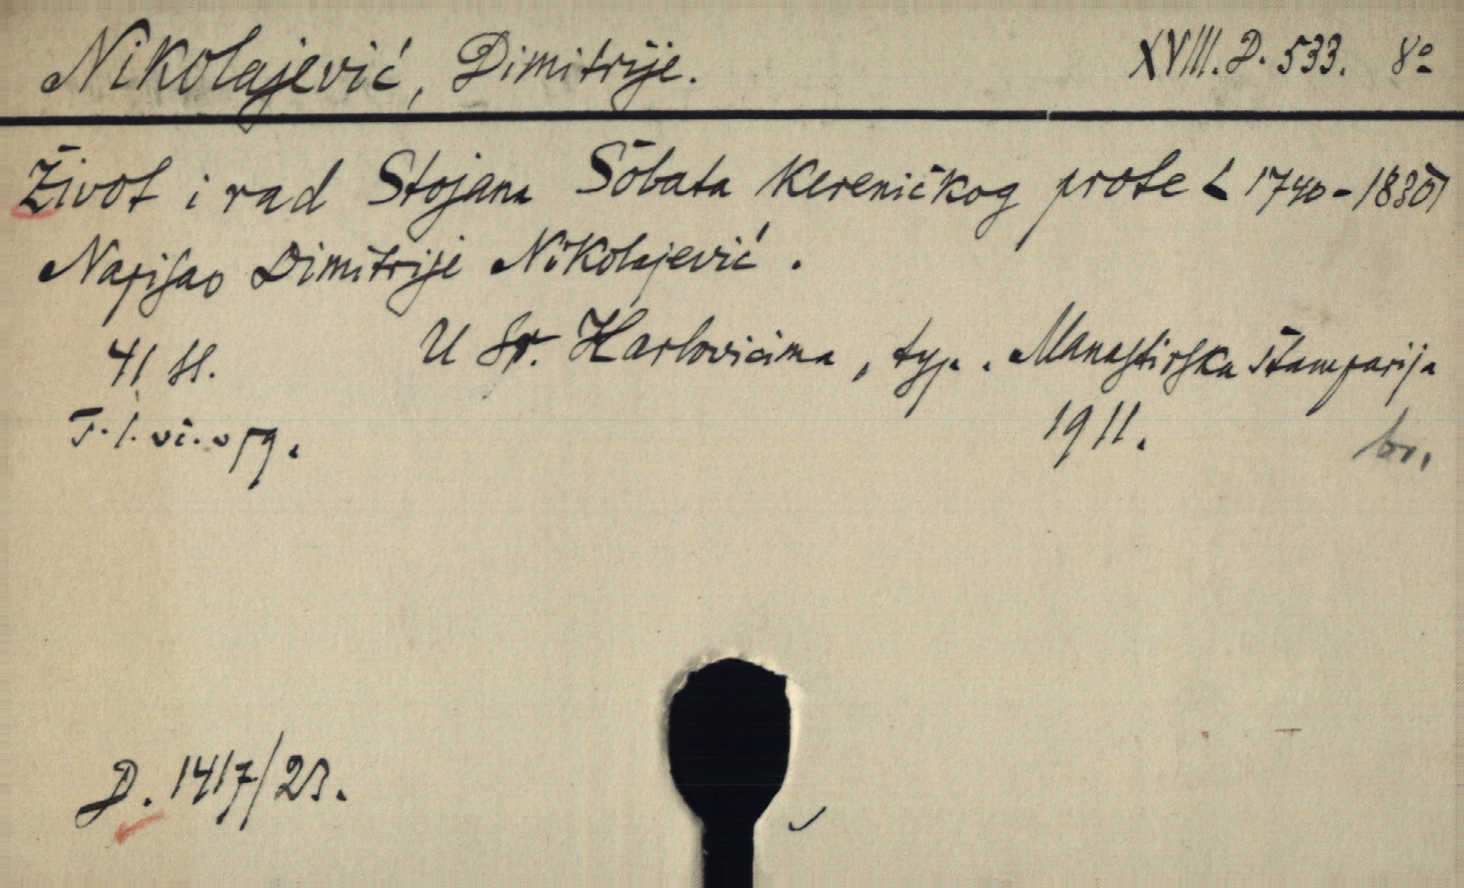 Nikolajević, Dimitrije. XVIII. D. 533. 8º
Život i rad Stojana Šobata kereničkog prote (1740-1830)
Napisao Dimitrije Nikolajević.
41 st. U Sr. Karlovicima, typ. Manastirska štamparija
1911. br.
D. 1417/23.